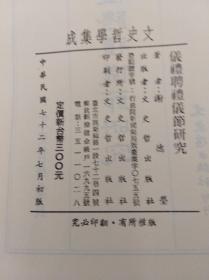 文史哲學集成
儀禮聘禮儀節研究
著者:謝德瑩
出版者:文史哲出版社
登記證字號:行政院新聞局局版臺業字〇七五五號
發行所:文史哲出版社
印刷者:文史哲出版社
臺北市羅斯福路一段七十二巷四號
電話:三五一一〇二八
定價新台幣三〇〇元
中華民國七十二年七月初版
版權所有·翻印必究